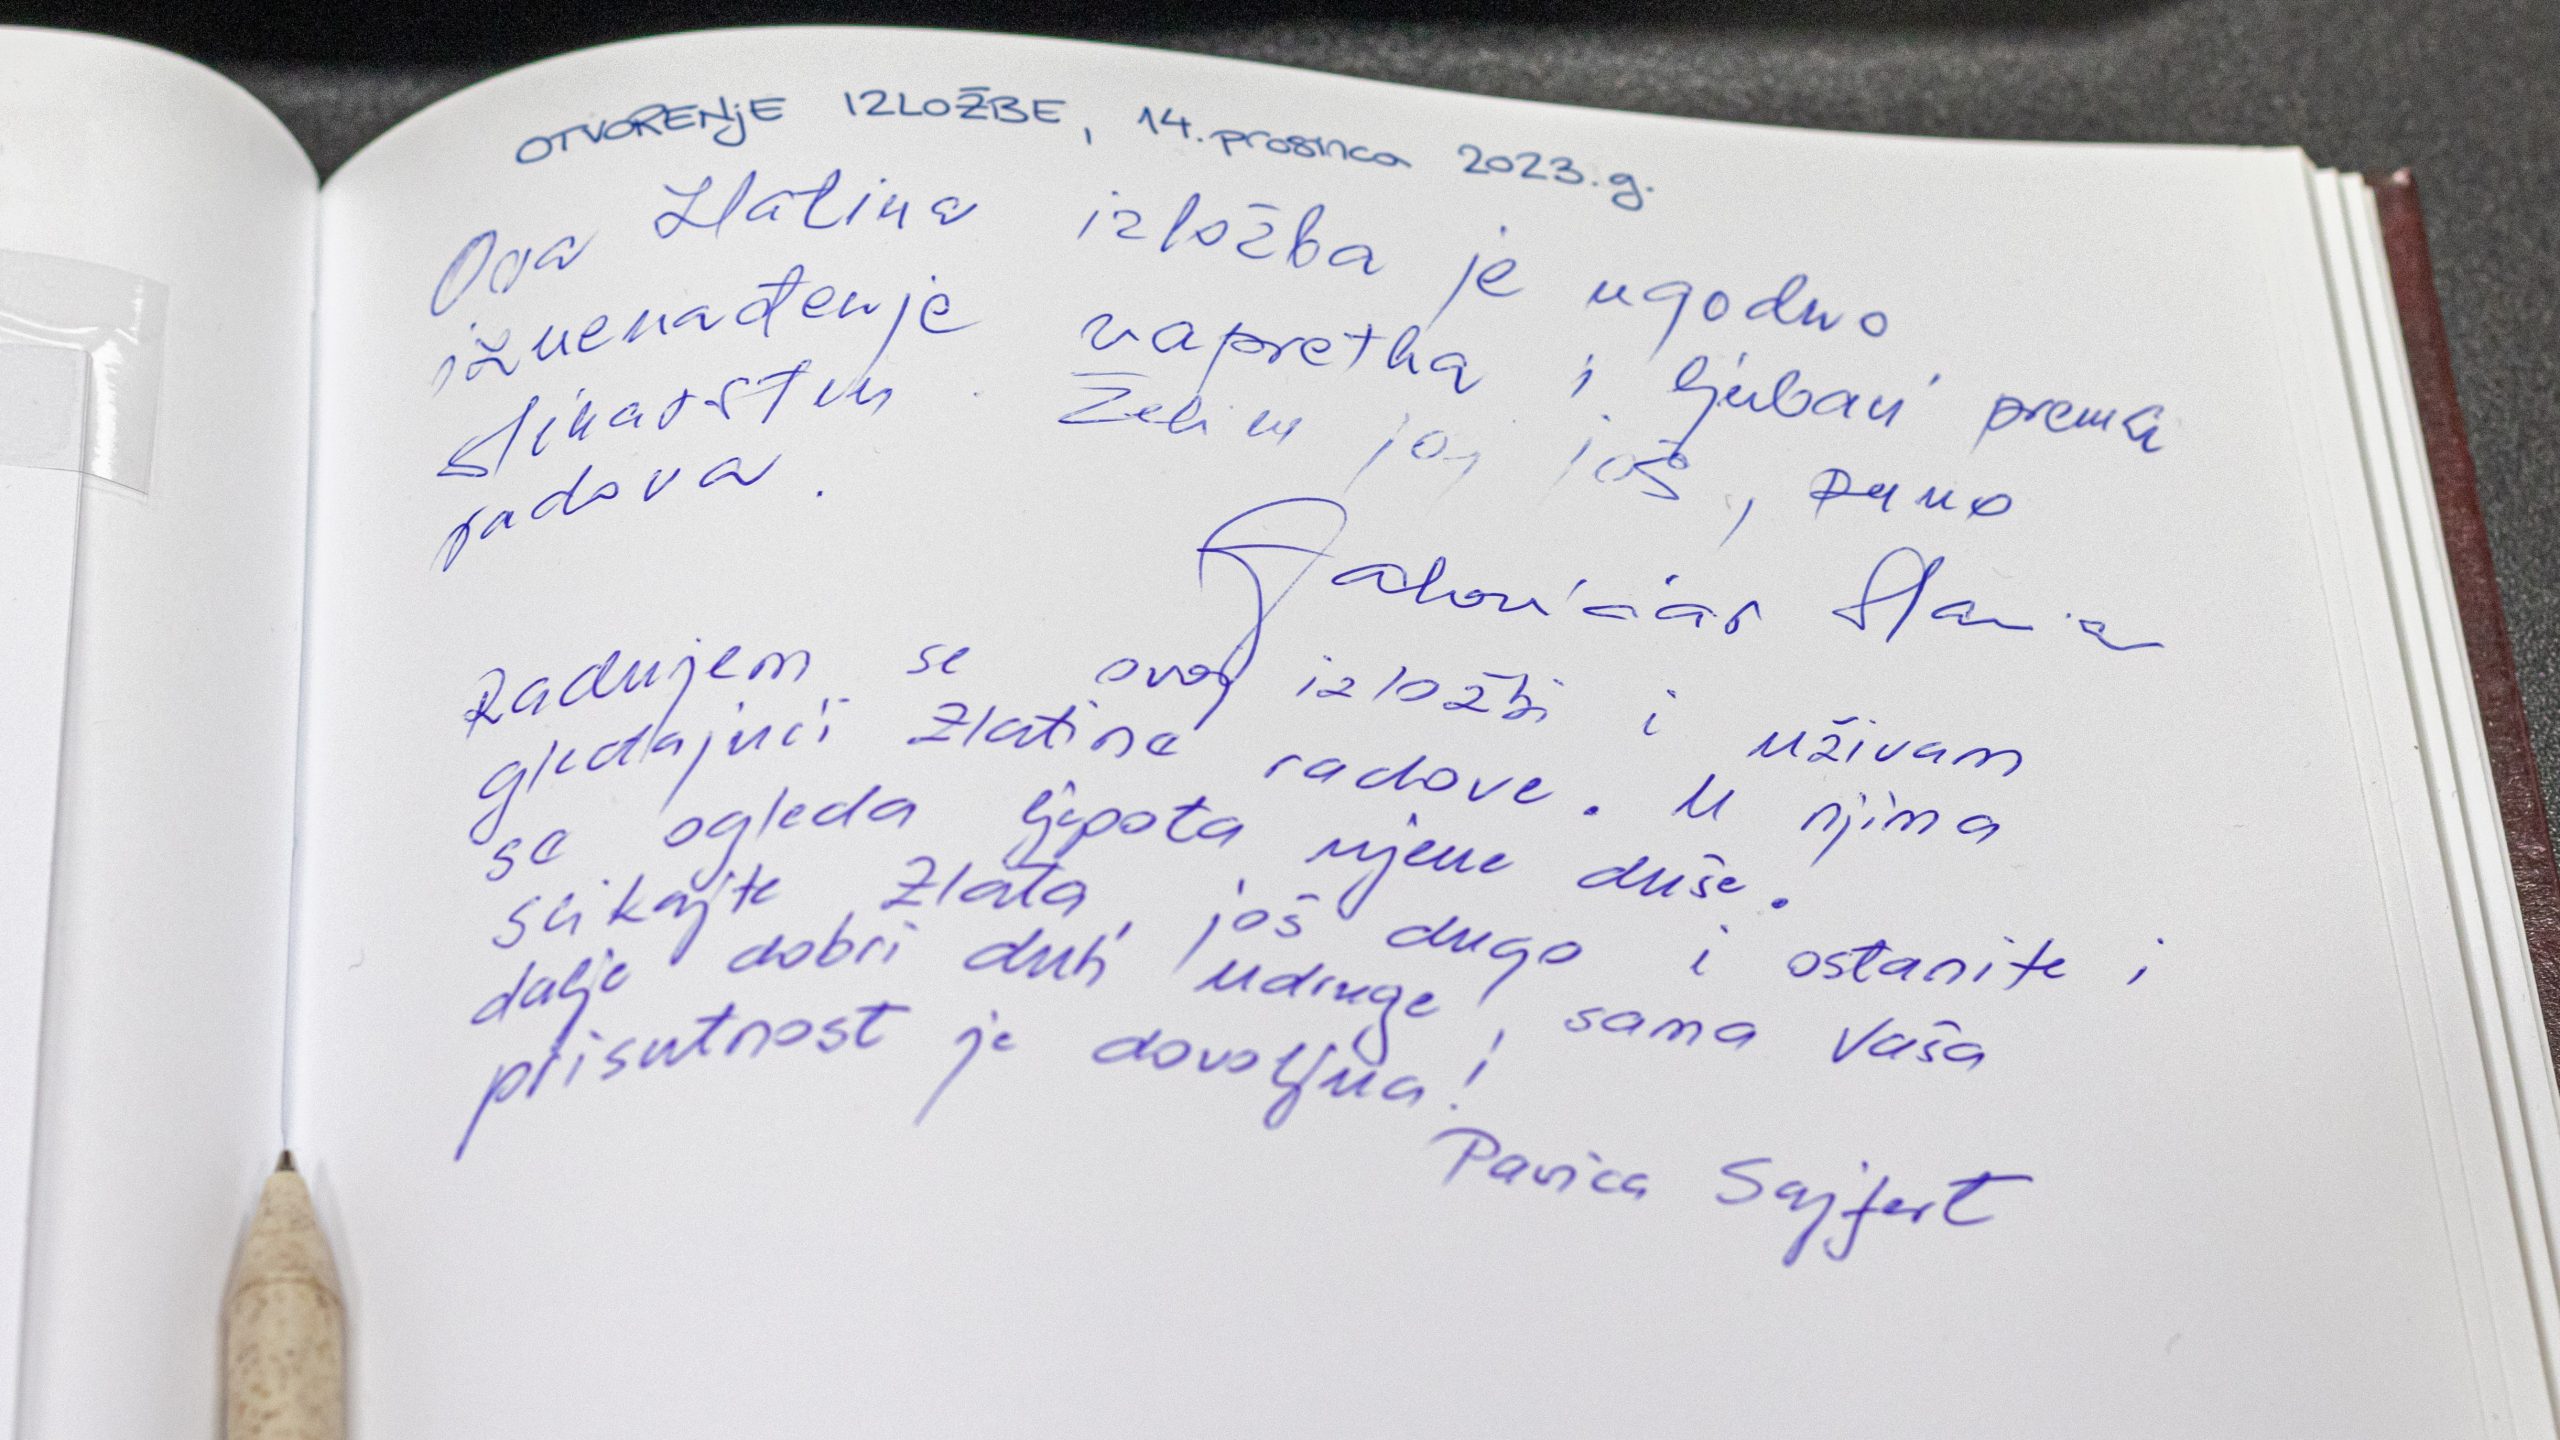 OTVORENjE IZLOŽBE, 14. prosinca 2023.g.
Ova Zlatina izložba je ugodno
iznenađenje napretka i ljubavi prema
slikarstvu. Želim joj još, puno
radova.
Radujem se ovoj izložbi i uživam
gledajući Zlatine radove. U njima
se ogleda ljepota njene duše.
Slikajte Zlata, još dugo i ostanite i
dalje dobri duh udruge, sama Vaša
prisutnost je dovoljna!
Pavica Sajfert